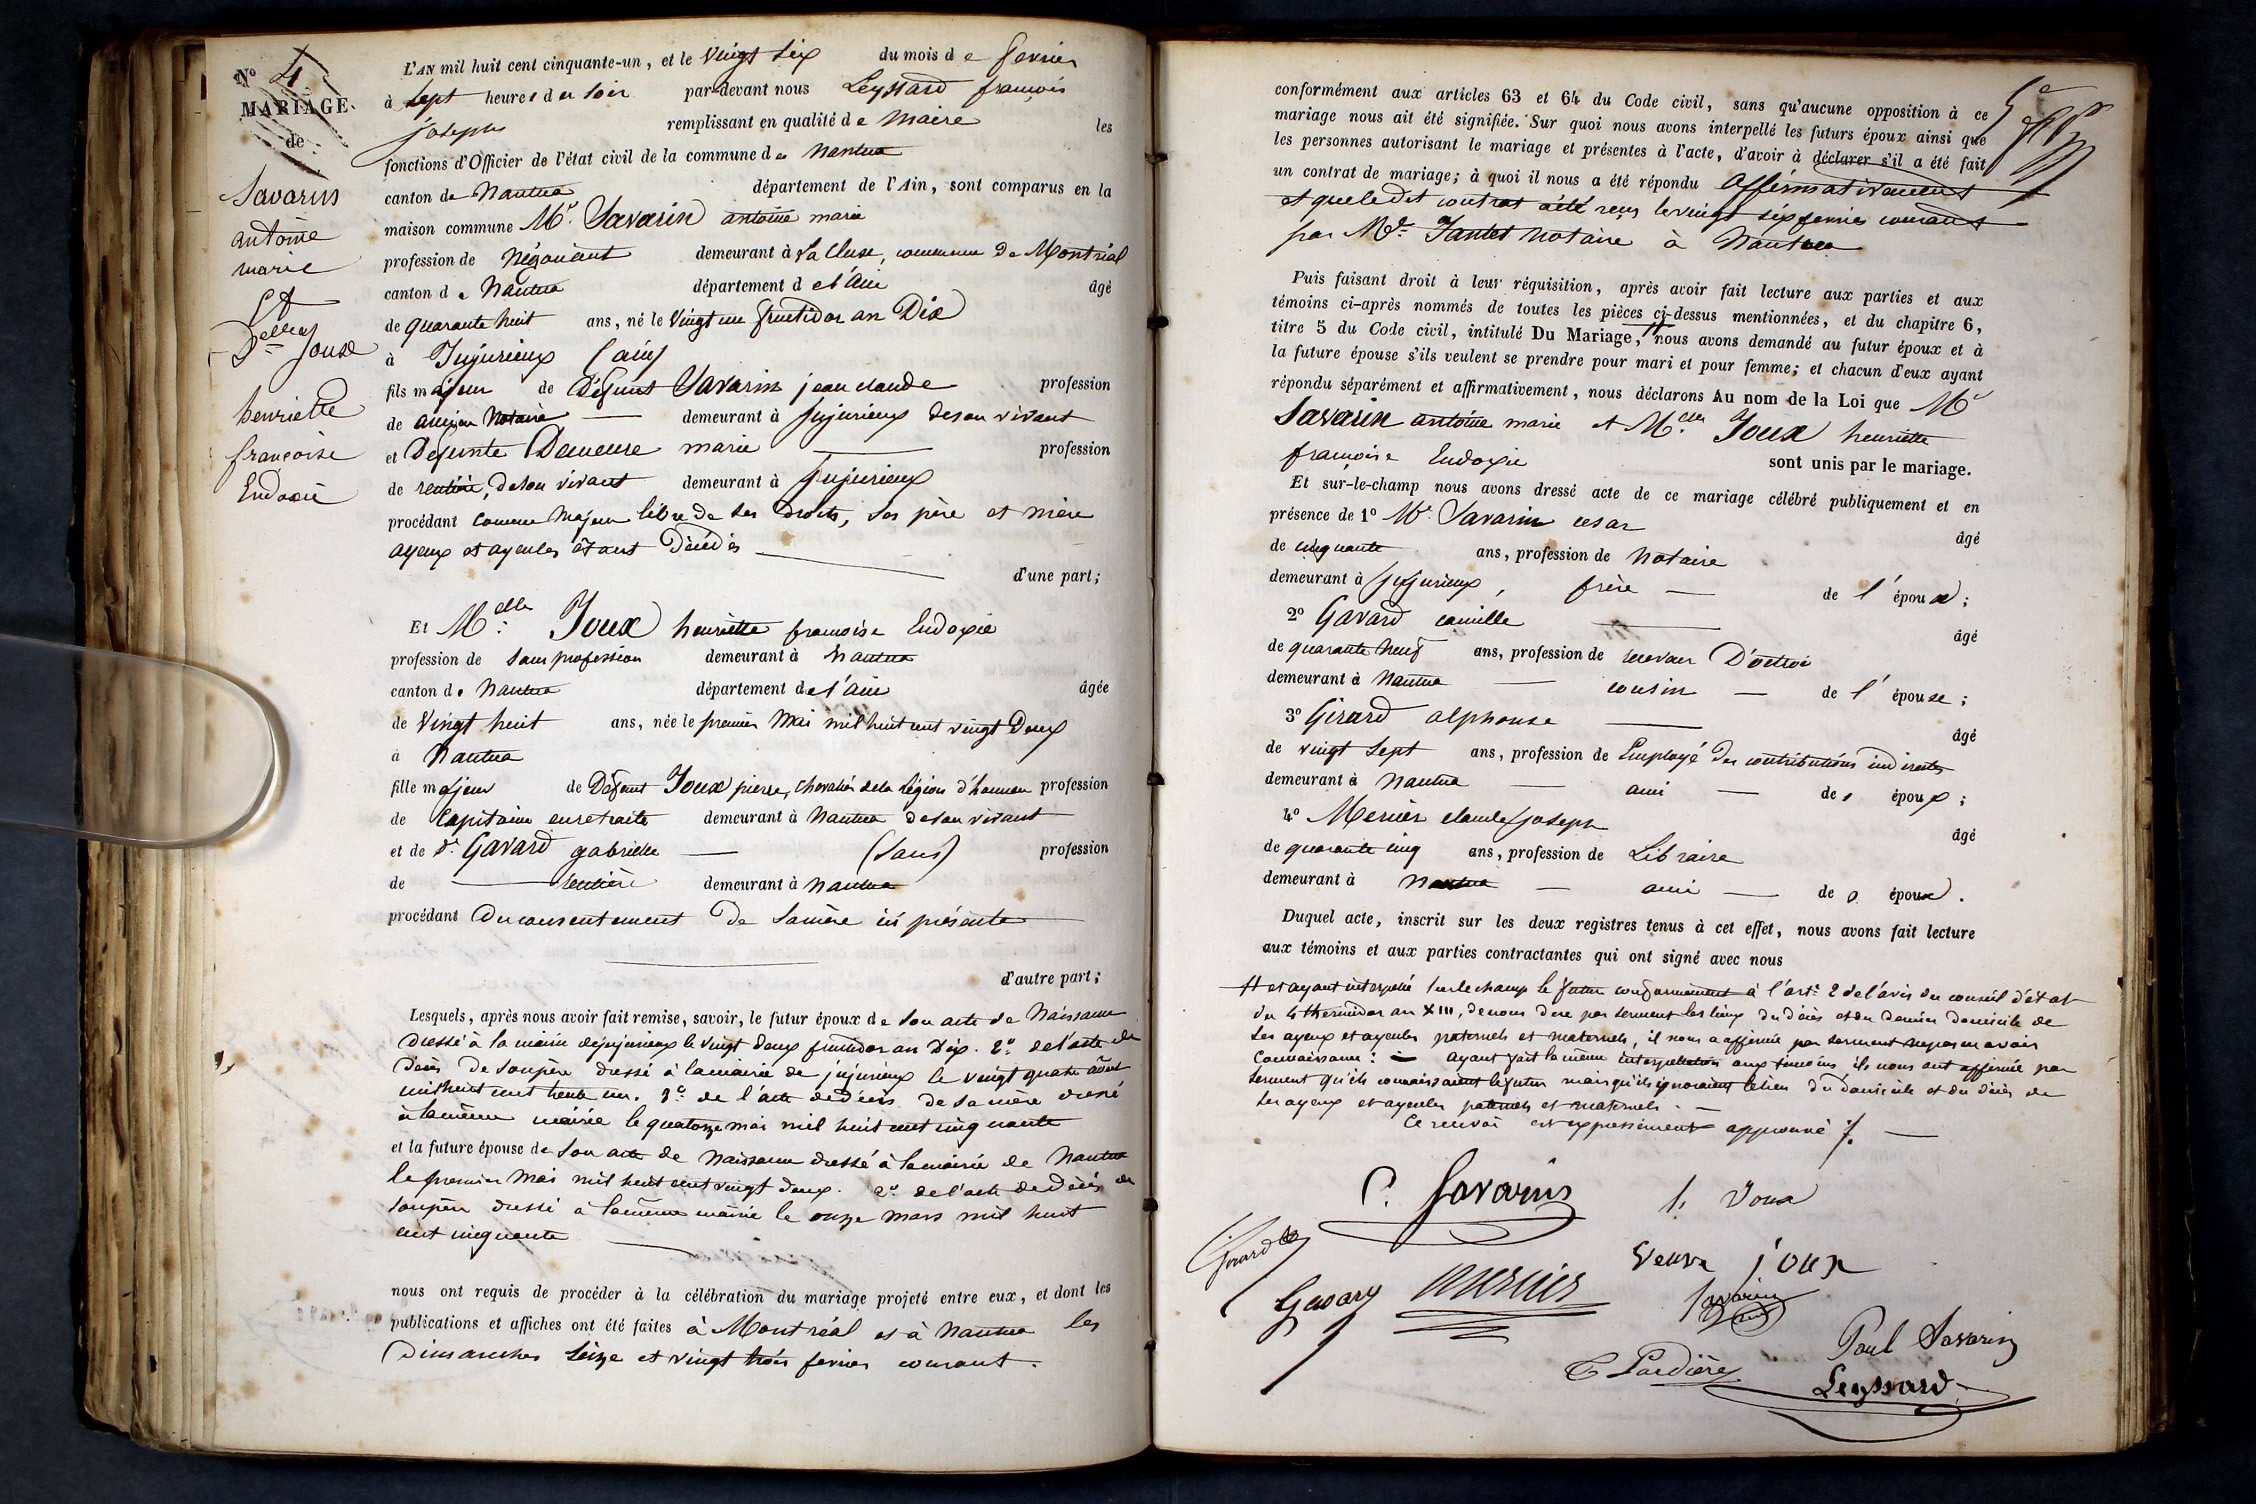 N° 4
MARIAGE
de
Savarin
antoine
marie
Et
D.elle
Joux
henriette
françoise
Eudoxie
L'AN mil huit cent cinquante-un, et le vingt six du mois de fevrier
à sept heures du soir par-devant nous Leyssard françois
joseph remplissant en qualité de Maire les
fonctions d'Officier de l'état civil de la commune de Nantua
canton de Nantua département de l'Ain, sont comparus en la
maison commune Mr. Savarin antoine marie
profession de Négociant demeurant à La Cluse, commune de Montréal
canton de Nantua département de l'ain âgé
de quarante huit ans, né le vingt un fructidor an Dix
à Jujurieux (ain)
fils majeur de Défunt Savarin jean claude profession
de ancien Notaire demeurant à Jujurieux de son vivant
et Defunte Demeure marie profession
de rentière, de son vivant demeurant à Jujurieux
procédant comme Majeur libre de ses droits, ses père et mère
ayeux et ayeules étant Décédés
d'une part;
Et M.elle Joux henriette françoise Eudoxie
profession de sans profession demeurant à Nantua
canton de Nantua département de l'ain âgée
de vingt huit ans, née le premier Mai mil huit cent vingt Deux
à Nantua
fille majeur de Défunt Joux pierre, chevalier de la légion d'honneur profession
de Capitaine en retraite demeurant à Nantua de son vivant
et de De. Gavard gabrielle (sans) profession
de rentière demeurant à Nantua
procédant du consentement de sa mère ici présente
d'autre part;
Lesquels, après nous avoir fait remise, savoir, le futur époux de son acte de Naissance
dressé à la mairie de jujurieux le vingt deux fructidor an Dix. 2° de l'acte de
décès de son père dressé à la mairie de jujurieux le vingt quatre août
mil huit cent trente un. 3° de l'acte de décès de sa mère dressé
à la même mairie le quatorze mai mil huit cent cinquante
et la future épouse de son acte de Naissance dressé à la mairie de Nantua
le premier Mai mil huit cent vingt deux. 2° de l'acte de Décès de
son père dressé à la même mairie le onze Mars mil huit
cent cinquante
nous ont requis de procéder à la célébration du mariage projeté entre eux, et dont les
publications et affiches ont été faites à Montréal et à Nantua les
Dimanches seize et vingt trois fevrier courant.
conformément aux articles 63 et 64 du Code civil, sans qu'aucune opposition à ce
mariage nous ait été signifiée. Sur quoi nous avons interpellé les futurs époux ainsi que
les personnes autorisant le mariage et présentes à l'acte, d'avoir à déclarer s'il a été fait
un contrat de mariage; à quoi il nous a été répondu affirmativement
et que ledit contrat a été reçu le vingt six fevrier courant
par Me. Jantet Notaire à Nantua
Puis faisant droit à leur réquisition, après avoir fait lecture aux parties et aux
témoins ci-après nommés de toutes les pièces ci-dessus mentionnées, et du chapitre 6,
titre 5 du Code civil, intitulé Du Mariage, # nous avons demandé au futur époux et à
la future épouse s'ils veulent se prendre pour mari et pour femme; et chacun d'eux ayant
répondu séparément et affirmativement, nous déclarons Au nom de la Loi que Mr
Savarin antoine marie et M.elle Joux henriette
françoise Eudoxie sont unis par le mariage.
Et sur-le-champ nous avons dressé acte de ce mariage célébré publiquement et en
présence de 1° Mr. Savarin cesar âgé
de cinquante ans, profession de Notaire
demeurant à Jujurieux, frère de l'époux;
2° Gavard camille âgé
de quarante neuf ans, profession de receveur D'octroi
demeurant à Nantua cousin de l'épouse;
3° Girard alphonse âgé
de vingt sept ans, profession de Employé des contributions indirectes
demeurant à Nantua ami des époux;
4° Mersier claude joseph âgé
de quarante cinq ans, profession de Libraire
demeurant à Nantua ami des époux.
Duquel acte, inscrit sur les deux registres tenus à cet effet, nous avons fait lecture
aux témoins et aux parties contractantes qui ont signé avec nous
# et ayant interpellé sur le champ le futur conformément à l'art. 2 de l'avis du conseil d'état
du 4 thermidor an XIII, de nous dire par serment les lieux du décès et du dernier domicile de
ses ayeux et ayeules paternels et maternels, il nous a affirmé par serment n'en pas avoir
connaissance: ayant fait la même interpellation aux témoins ils nous ont affirmé par
serment qu'ils connaissaient le futur mais qu'ils ignoraient le lieu du domicile et du décès de
ses ayeux et ayeules paternels et maternels.
Ce renvoi est expressément approuvé
C. Savarin
h. Joux
Girard
Veuve joux
Gavard
Mersier
Savarin
Paul Savarin
Leyssard